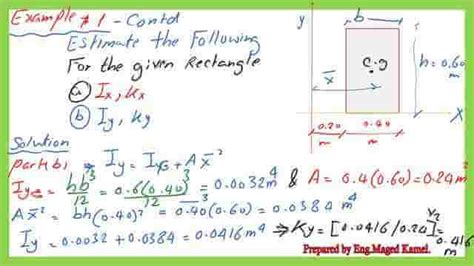 Example # 1 - Contd
Estimate the Following
For the given Rectangle
(a) Ix, kx
(b) Iy, ky
Solution
part b, Iy = Iyg + A x̄²
Iyg = hb³/12 = 0.6(0.40)³/12 = 0.0032 m⁴ & A = 0.4(0.60) = 0.24 m²
A x̄² = bh(0.40)² = 0.40(0.60) = 0.0384 m⁴
Iy = 0.0032 + 0.0384 = 0.0416 m⁴ ⇒ Ky = [0.0416/0.24]^1/2 = 0.416 m
Prepared by Eng.Maged Kamel.
y
b
C.g
x̄
h = 0.60 m
x
0.20 m
0.40 m